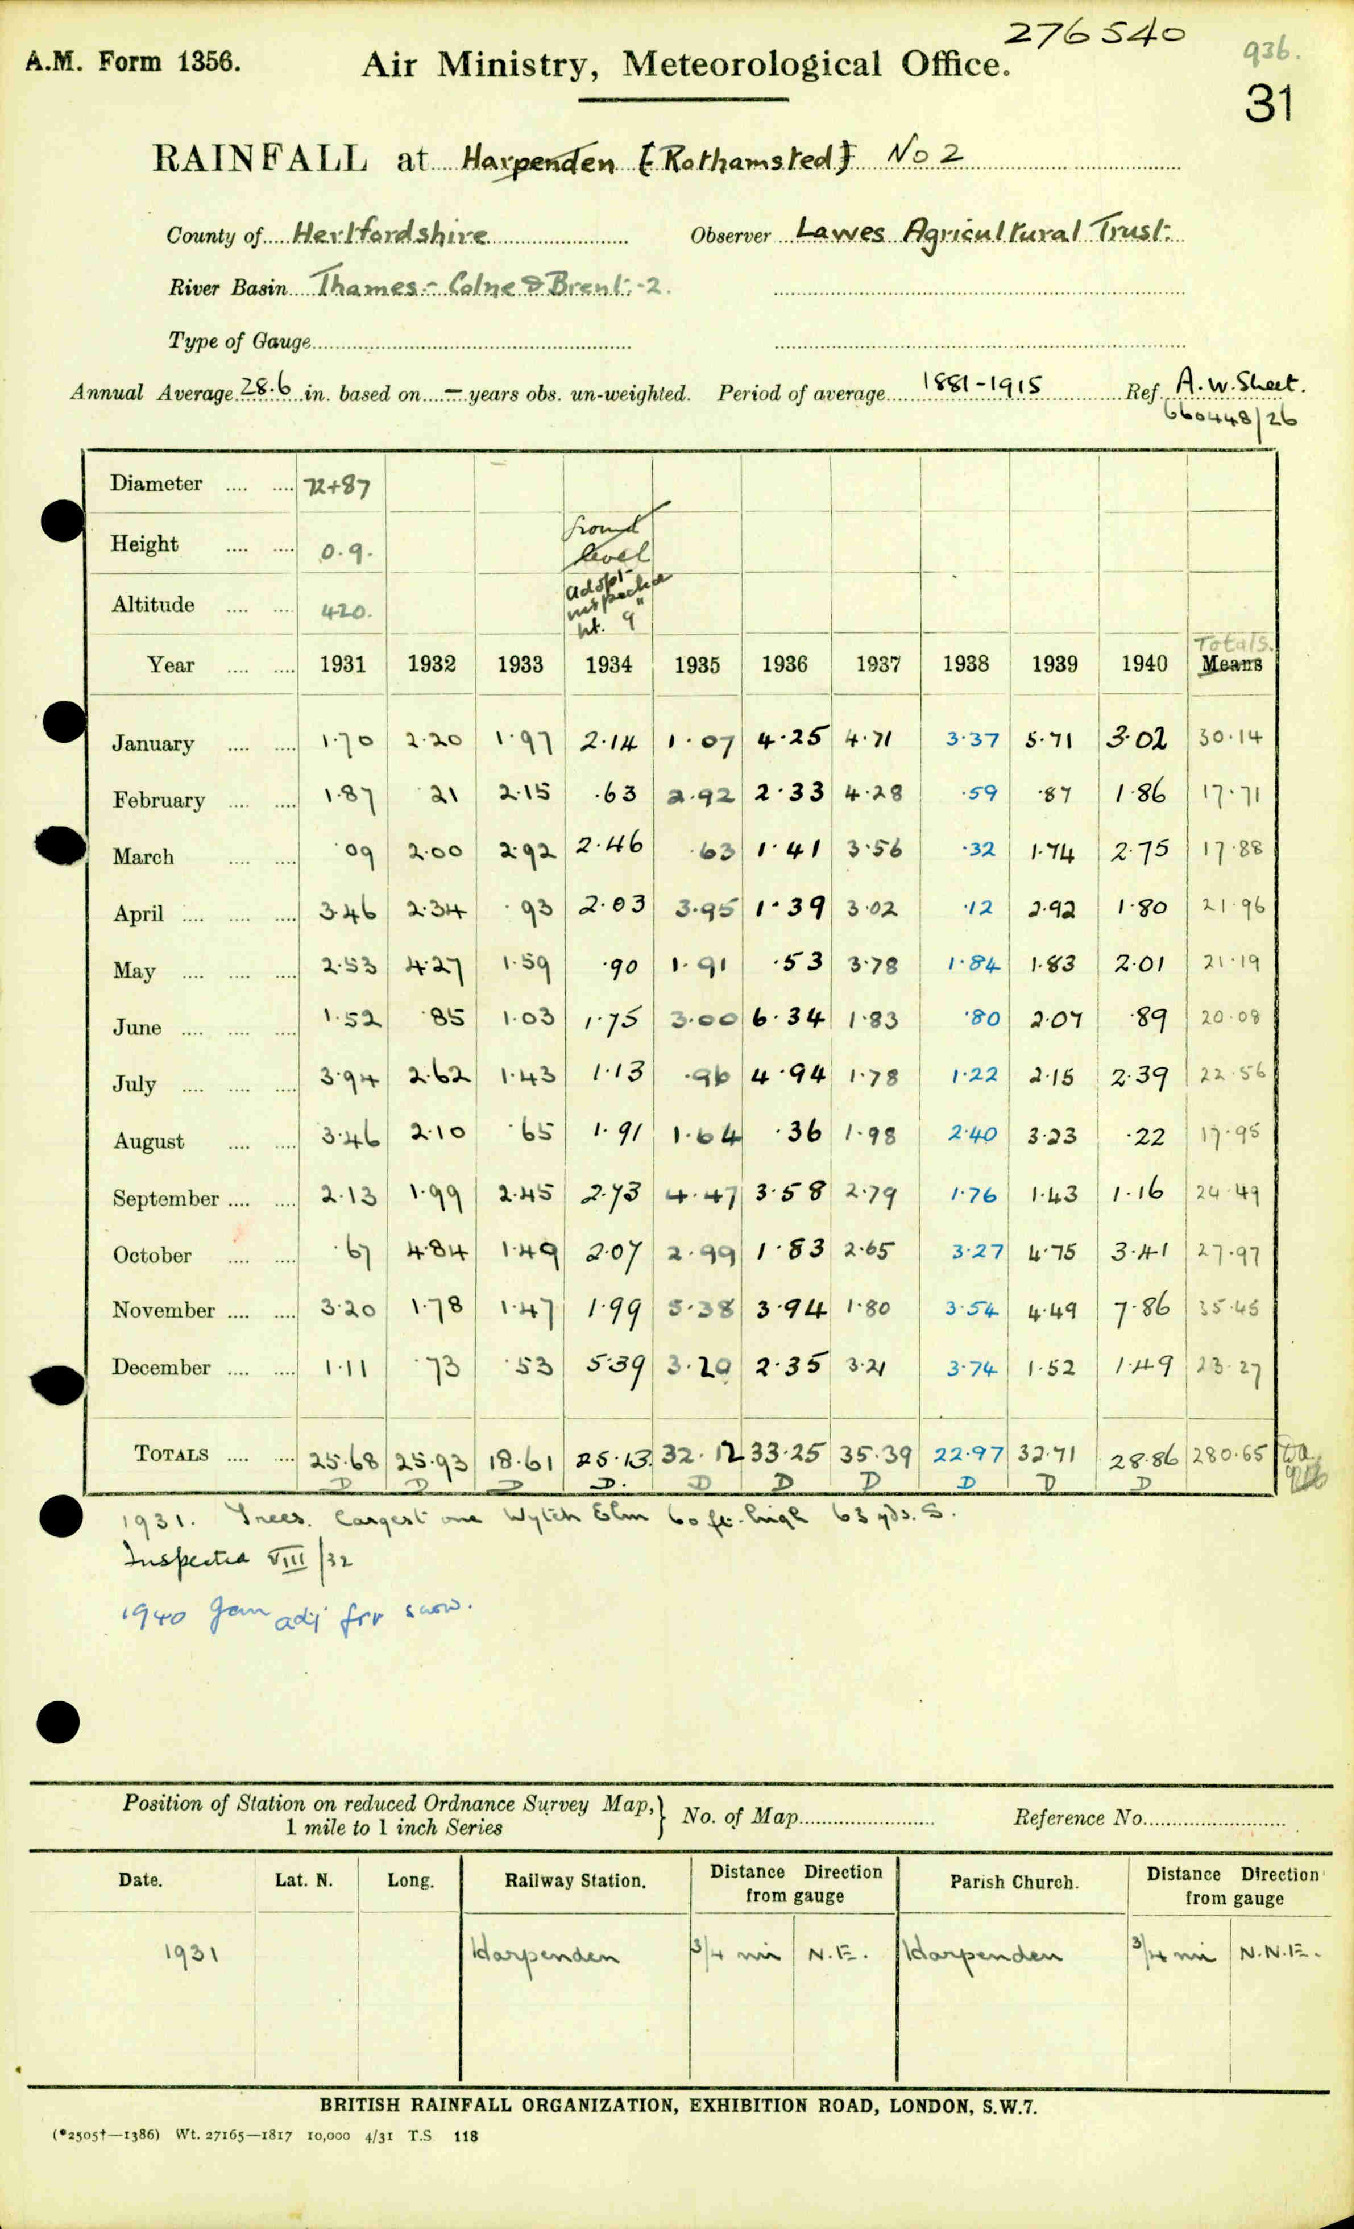 276540
936.
A.M. Form 1356. Air Ministry, Meteorological Office.
31
RAINFALL at Harpenden [Rothamsted] No 2
County of Hertfordshire Observer Lawes Agricultural Trust.
River Basin Thames - Colne & Brent. -2.
Type of Gauge
Annual Average 28.6 in. based on — years obs. un-weighted. Period of average 1881-1915 Ref. A.W. Sheet.
660448/26
Diameter .... .... 72+87
Height .... .... 0.9. Ground level
Altitude .... .... 420. adopt inspected ht. 9"
Totals.
Year .... .... 1931 1932 1933 1934 1935 1936 1937 1938 1939 1940 Means
January .... .... 1.70 2.20 1.97 2.14 1.07 4.25 4.71 3.37 5.71 3.02 30.14
February .... .... 1.87 .21 2.15 .63 2.92 2.33 4.28 .59 .87 1.86 17.71
March .... .... .09 2.00 2.92 2.46 .63 1.41 3.56 .32 1.74 2.75 17.88
April .... .... .... 3.46 2.34 .93 2.03 3.95 1.39 3.02 .12 2.92 1.80 21.96
May .... .... .... 2.53 4.27 1.59 .90 1.91 .53 3.78 1.84 1.83 2.01 21.19
June .... .... .... 1.52 .85 1.03 1.75 3.00 6.34 1.83 .80 2.07 .89 20.08
July .... .... .... 3.94 2.62 1.43 1.13 .96 4.94 1.78 1.22 2.15 2.39 22.56
August .... .... 3.46 2.10 .65 1.91 1.64 .36 1.98 2.40 3.23 .22 17.95
September .... .... 2.13 1.99 2.45 2.73 4.47 3.58 2.79 1.76 1.43 1.16 24.49
October .... .... .67 4.84 1.49 2.07 2.99 1.83 2.65 3.27 4.75 3.41 27.97
November .... .... 3.20 1.78 1.47 1.99 5.38 3.94 1.80 3.54 4.49 7.86 35.45
December .... .... 1.11 .73 .53 5.39 3.20 2.35 3.21 3.74 1.52 1.49 23.27
TOTALS .... .... 25.68 25.93 18.61 25.13 32.12 33.25 35.39 22.97 32.71 28.86 280.65
D D D D. D D D D D D
1931. Trees. Largest one Wytch Elm 60 ft. high 63 yds. S.
Inspected VIII/32
1940 Jan adj for snow.
Position of Station on reduced Ordnance Survey Map, 1 mile to 1 inch Series } No. of Map Reference No.
Date. Lat. N. Long. Railway Station. Distance Direction from gauge Parish Church. Distance Direction from gauge
1931 Harpenden 3/4 mi N.E. Harpenden 3/4 mi N.N.E.
BRITISH RAINFALL ORGANIZATION, EXHIBITION ROAD, LONDON, S.W.7.
(*2505†—1386) Wt. 27165—1817 10,000 4/31 T.S 118